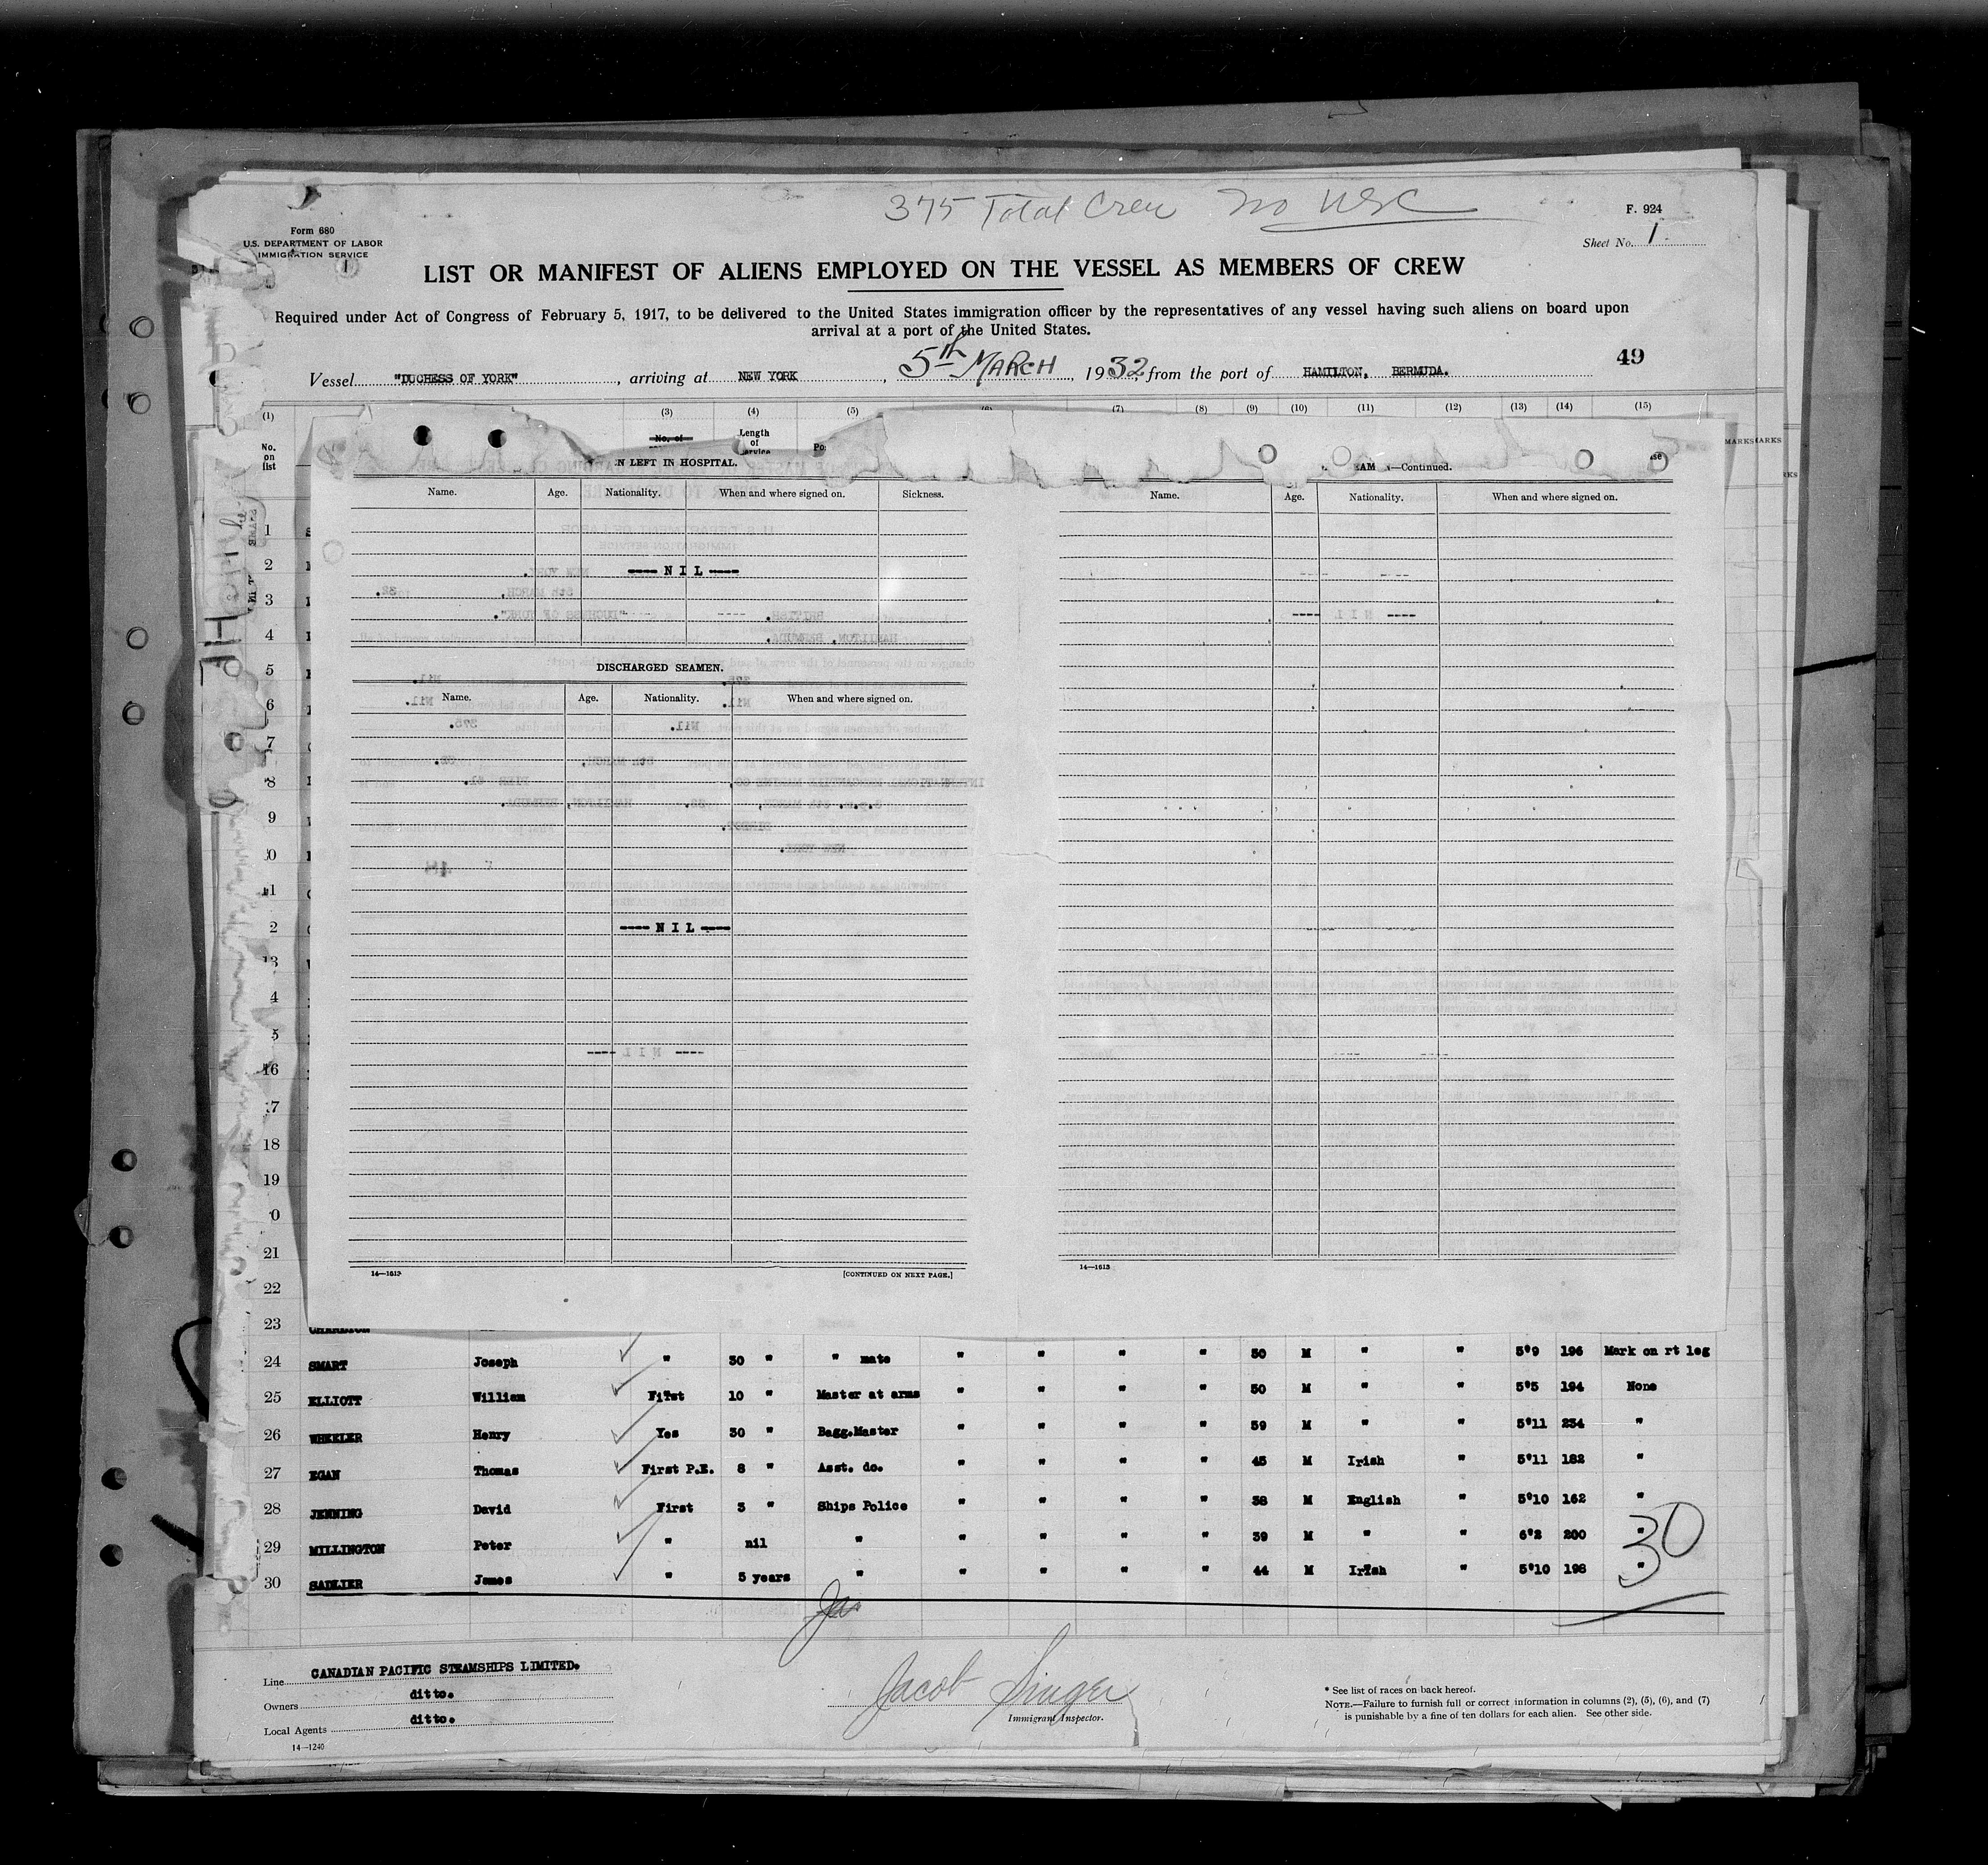 375 Total Crew No USC
F. 924
Sheet No. 1.
Form 680
U.S. DEPARTMENT OF LABOR
IMMIGRATION SERVICE
LIST OR MANIFEST OF ALIENS EMPLOYED ON THE VESSEL AS MEMBERS OF CREW
Required under Act of Congress of February 5, 1917, to be delivered to the United States immigration officer by the representatives of any vessel having such aliens on board upon
arrival at a port of the United States.
49
Vessel "DUCHESS OF YORK", arriving at NEW YORK, 5th MARCH, 1932, from the port of HAMILTON, BERMUDA.
(1) (3) (4) (5) (7) (8) (9) (10) (11) (12) (13) (14) (15)
No. on list
No. of
Length of
LEFT IN HOSPITAL.
Name. Age. Nationality. When and where signed on. Sickness.
---- N I L ----
DISCHARGED SEAMEN.
Name. Age. Nationality. When and where signed on.
---- N I L ----
14—1613 [CONTINUED ON NEXT PAGE.]
—Continued.
Name. Age. Nationality. When and where signed on.
14—1613
1
2
3
4
5
6
7
8
9
0
11
2
13
4
5
16
7
18
19
0
21
22
23
24 SMART Joseph " 30 " " mate " " " " 50 M " " 5'9 196 Mark on rt leg
25 ELLIOTT William First 10 " Master at arms " " " " 50 M " " 5'5 194 None
26 WHEELER Henry Yes 30 " Bagg.Master " " " " 59 M " " 5'11 234 "
27 EGAN Thomas First P.E. 8 " Asst. do. " " " " 45 M Irish " 5'11 182 "
28 JENNING David First 3 " Ships Police " " " " 38 M English " 5'10 162 "
29 MILLINGTON Peter " nil " " " " " 39 M " " 6'2 200 "
30 SADLIER James " 5 years " " " " " 44 M Irish " 5'10 198 "
30
Line CANADIAN PACIFIC STEAMSHIPS LIMITED.
Owners ditto.
Local Agents ditto.
14—1240
Jacob Singer
Immigrant Inspector.
* See list of races on back hereof.
NOTE.—Failure to furnish full or correct information in columns (2), (5), (6), and (7)
is punishable by a fine of ten dollars for each alien. See other side.